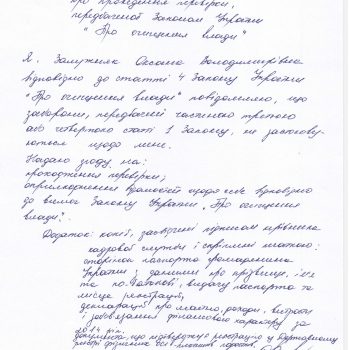 про проходження перевірки,
передбаченої Законом України
"Про очищення влади"
Я, Оксана Володимирівна
відповідно до статті 4 Закону України
"Про очищення влади" повідомляю, що
заборони, передбачені частиною третьою
або четвертою статті 1 Закону, не застосову-
ються щодо мене.
Надаю згоду на:
проходження перевірки;
оприлюднення відомостей щодо себе відповідно
до вимог Закону України "Про очищення
влади".
Додаток: копії, засвідчені підписом керівника
кадрової служби і скріплені печаткою:
сторінок паспорта громадянина
України з даними про прізвище, ім'я
та по батькові, видачу паспорта та
місце реєстрації;
декларації про майно, доходи, витрати
і зобов'язання фінансового характеру за
2014 рік;
документа, що підтверджує реєстрацію у Державному
реєстрі фізичних осіб - платників податків.